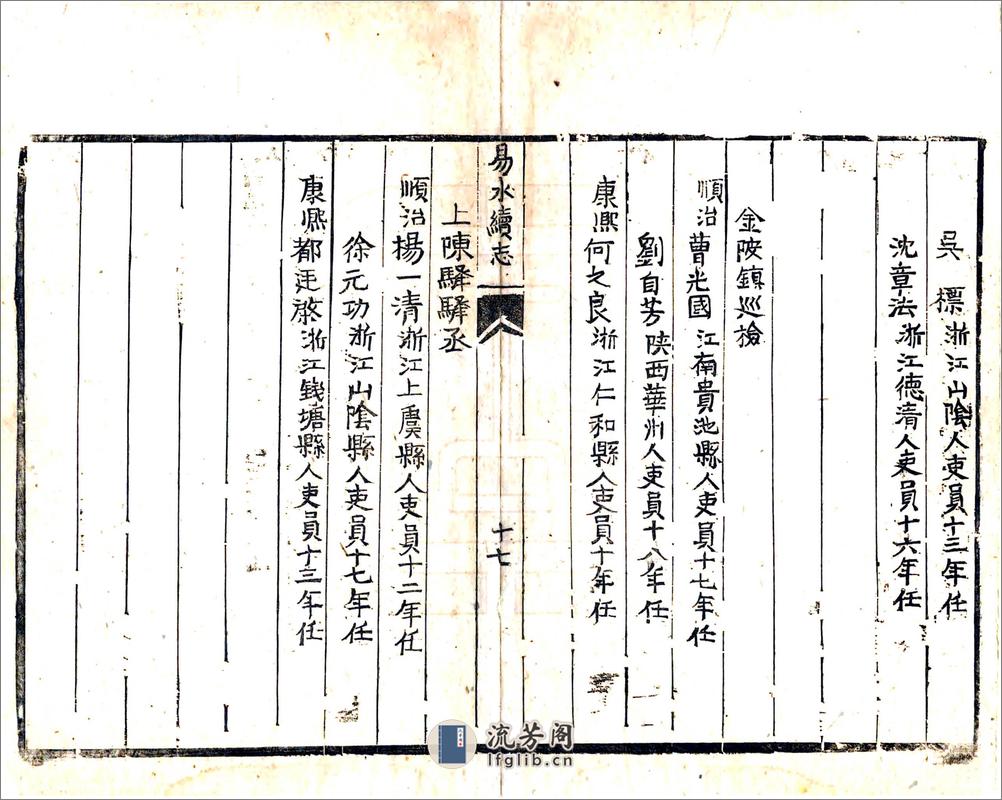 吳 標浙江山陰人吏員十三年任
沈章法浙江德清人吏員十六年任
金陂鎮巡檢
順治曹光國江南貴池縣人吏員十七年任
劉自芳陝西華州人吏員十八年任
康熙何之良浙江仁和縣人吏員十年任
易水續志
十七
上陳驛驛丞
順治楊一清浙江上虞縣人吏員十二年任
徐元功浙江山陰縣人吏員十七年任
康熙都浙江錢塘縣人吏員十三年任
流芳阁
lfglib.cn